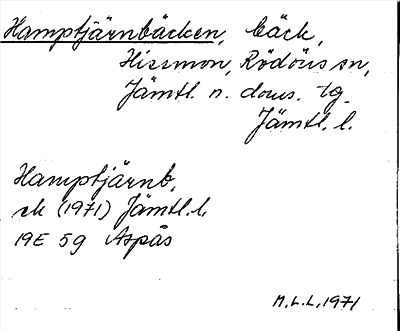 Hamptjärnbäcken, bäck,
Hissmon, Rödöns sn,
Jämtl. n. doms. tg.
Jämtl. l.
Hamptjärnb.
ek (1971) Jämtl. l.
19E 5g Aspås
M.L.L. 1971